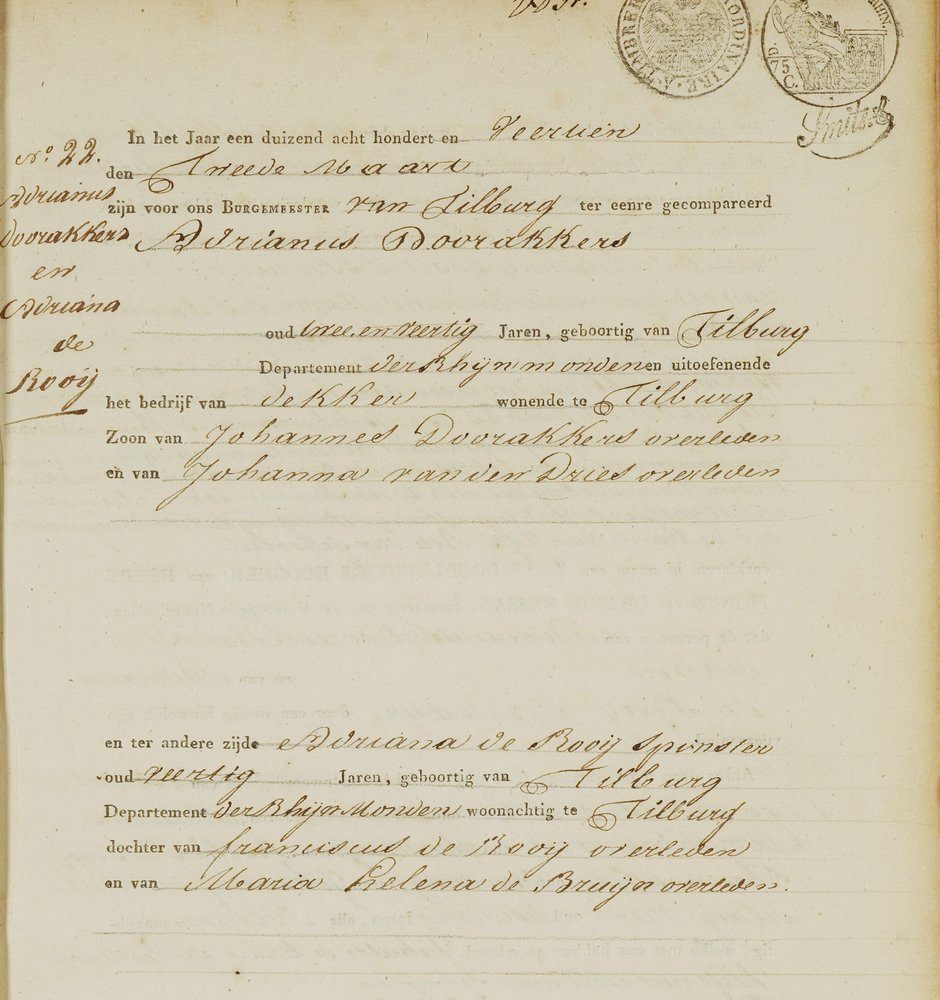 In het Jaar een duizend acht hondert en Veertien
den Tweede Maart
zijn voor ons BURGEMEESTER van Tilburg ter eenre gecompareerd
Adrianus Doorakkers
N.o 22.
Adrianus
Doorakkers
en
Adriana
de
Rooij
oud twee en veertig Jaren, geboortig van Tilburg
Departement der Rhijn monden en uitoefenende
het bedrijf van dekker wonende te Tilburg
Zoon van Johannes Doorakkers overleden
en van Johanna van den Dries overleden
en ter andere zijde Adriana de Rooij spinster
oud veertig Jaren, geboortig van Tilburg
Departement der Rhijn Monden woonachtig te Tilburg
dochter van franciscus de Rooij overleden
en van Maria Helena de Bruijn overleden.
TIMBRE
ORDINAIRE
75 C.
Smits